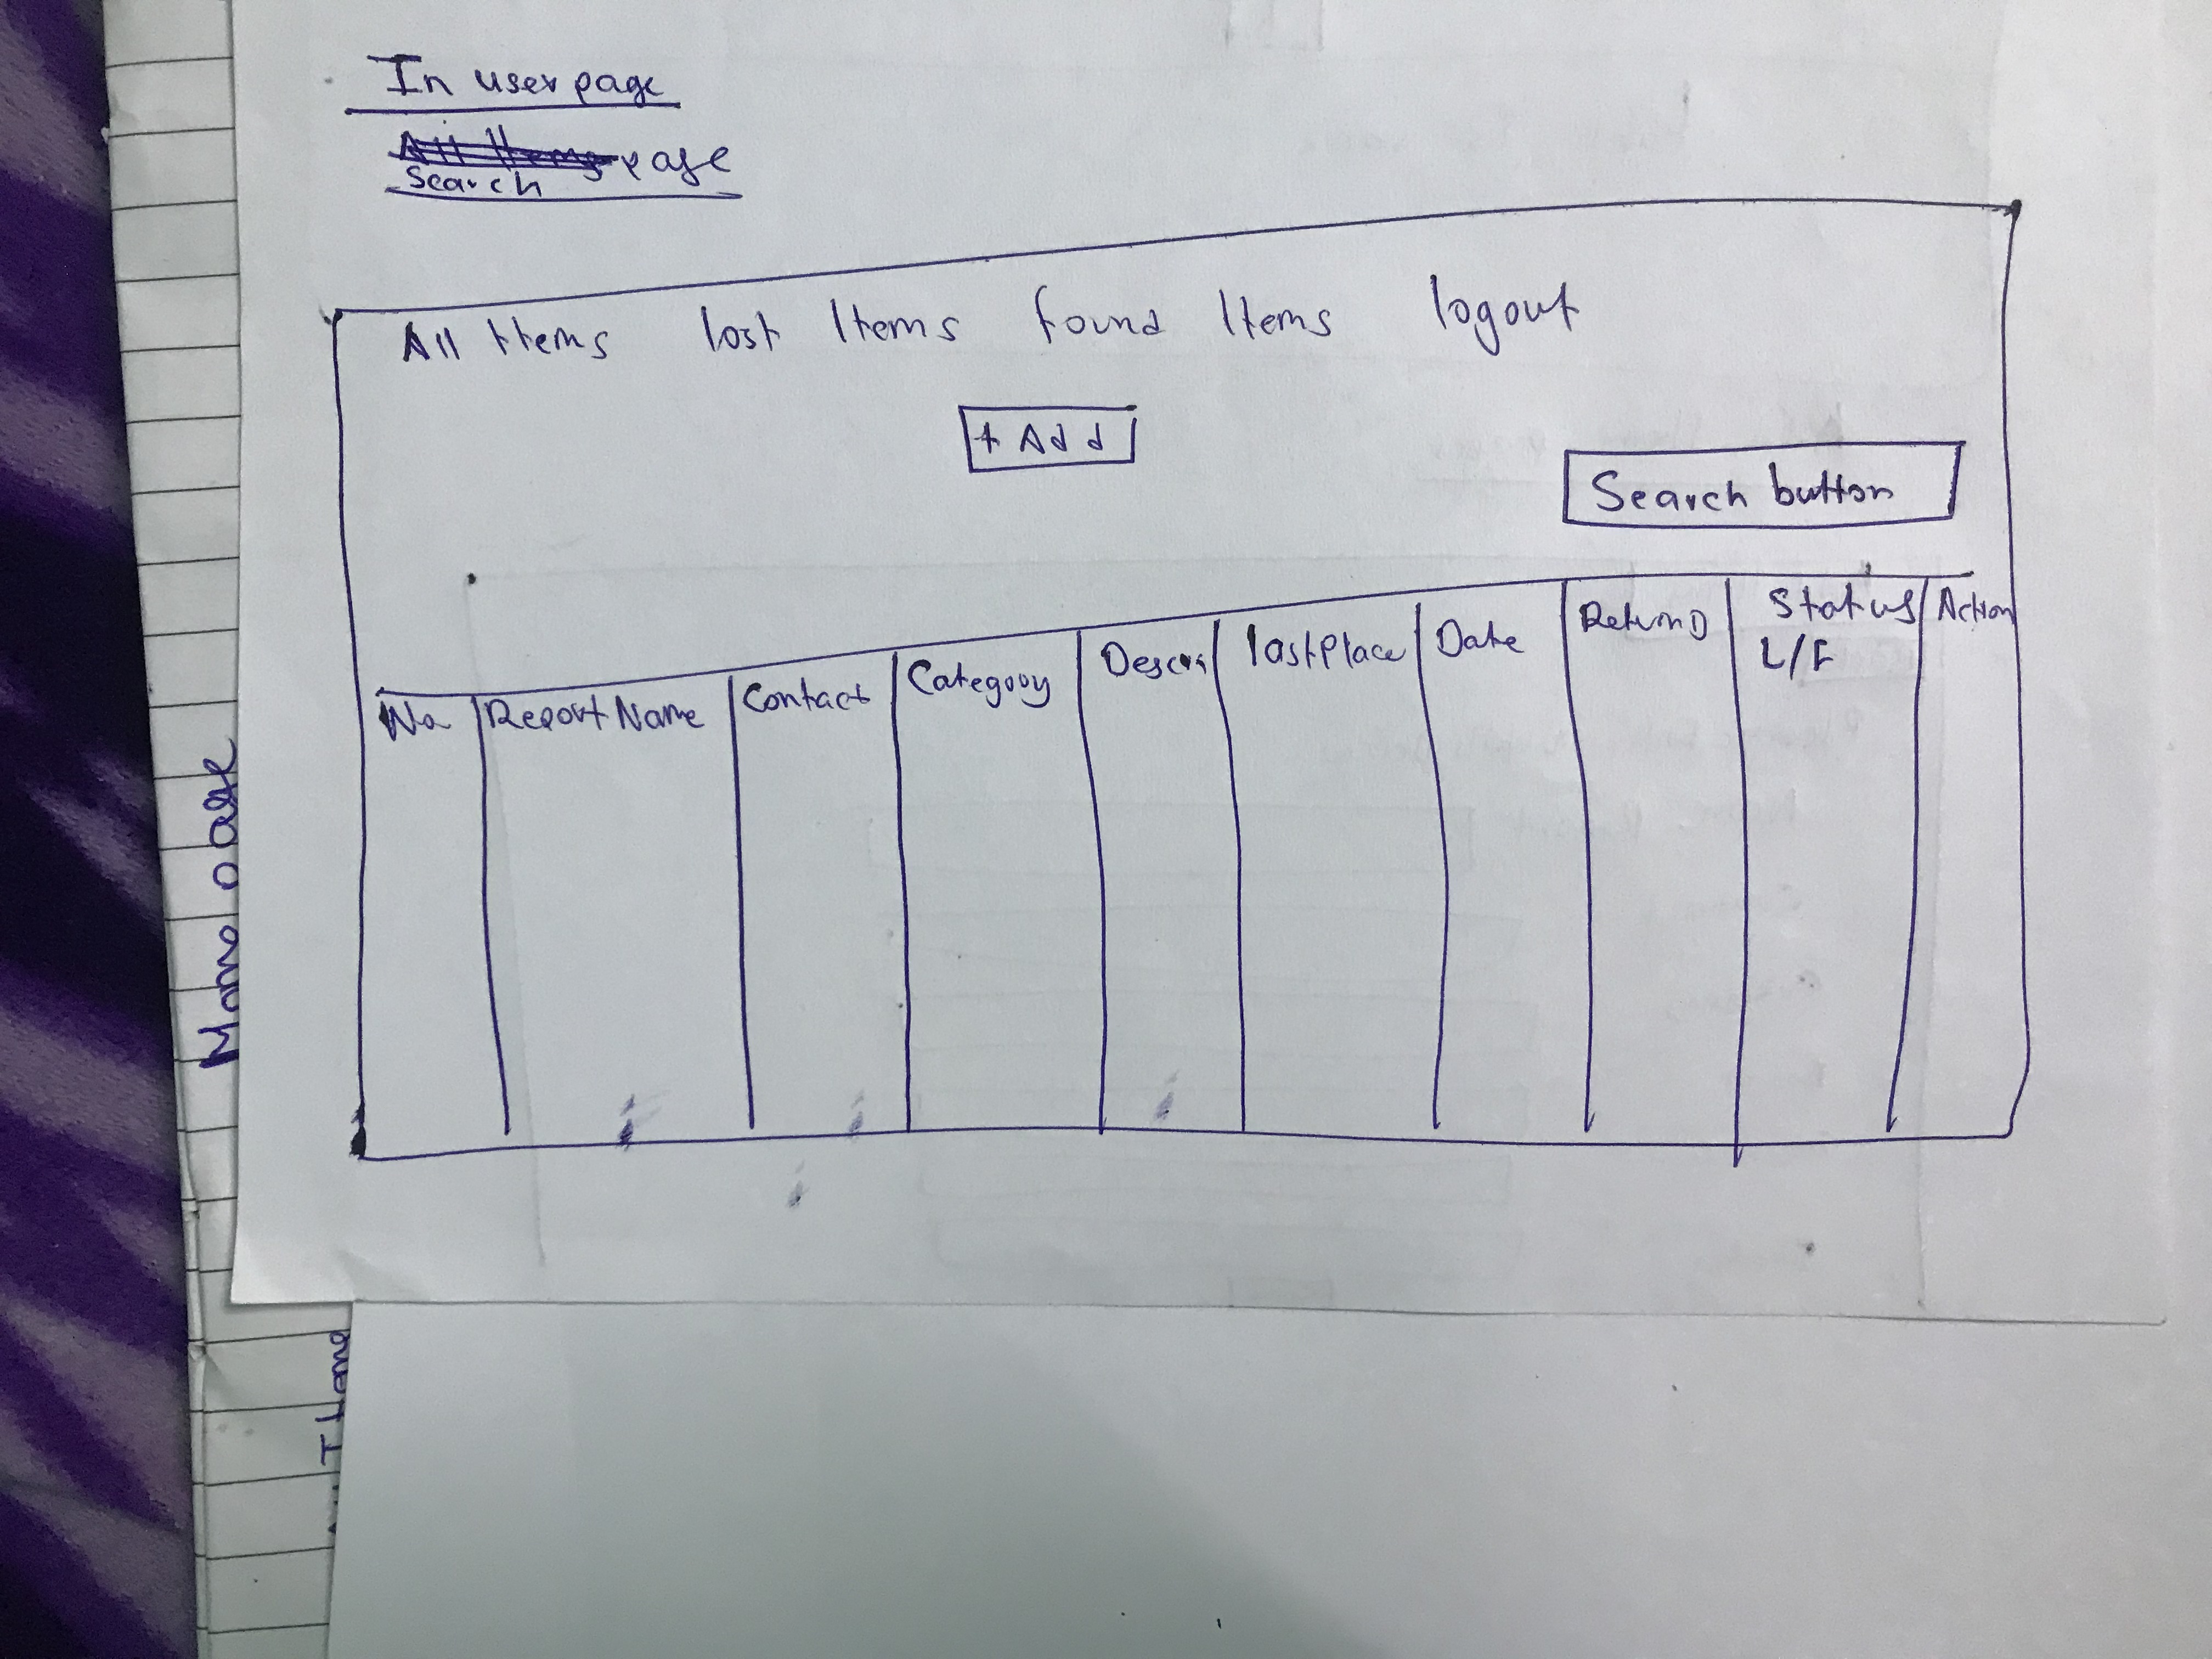 Home page
In user page
Search page
All Items lost Items found Items logout
+ Add
Search button
No Report Name Contact Category Descri last Place Date Status Action
L/F